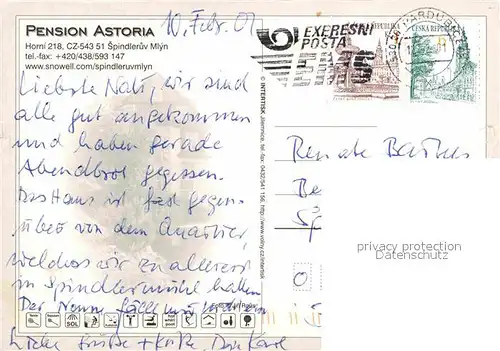 PENSION ASTORIA
Horní 218, CZ-543 51 Špindlerův Mlýn
tel.-fax: +420/438/593 147
www.snowell.com/spindleruvmlyn
10. Febr. 01
EXPRESNÍ
POŠTA
EMS
ČESKÁ REPUBLIKA
ČESKÁ REPUBLIKA
PARDUBICE
Liebste Nati, wir sind
alle gut angekommen
und haben gerade
Abendbrot gegessen.
Das Haus ist fast gegen-
über von dem Quartier,
welches wir zu allererst
in Spindlermühle hatten.
Der
Liebe Grüße + Küße, Dein Karl
© INTERTISK Jilemnice, tel.-fax. 0432/541 156, http://www.volny.cz/intertisk
Renate
Be
Sp
privacy protection
watermark